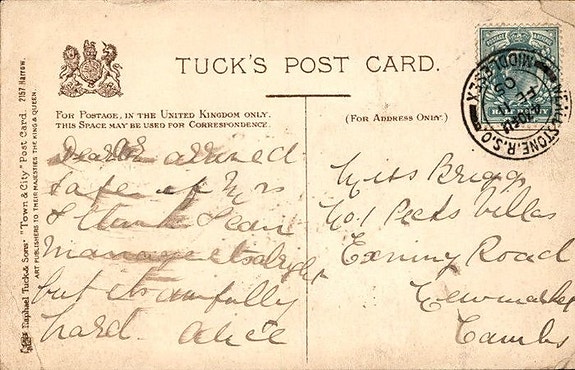 TUCK'S POST CARD.
FOR POSTAGE, IN THE UNITED KINGDOM ONLY.
THIS SPACE MAY BE USED FOR CORRESPONDENCE.
(FOR ADDRESS ONLY.)
Raphael Tuck & Sons' "Town & City" Post Card. 2157 Harrow.
ART PUBLISHERS TO THEIR MAJESTIES THE KING & QUEEN.
arrived
safe at Mrs
I think I can
manage it alright
but its awfully
hard. Alice
Miss Briggs
No. 1 Peets Villas
Exning Road
Newmarket
Cambs
HALF PENNY
WEALDSTONE. R.S.O.
MIDDLESEX